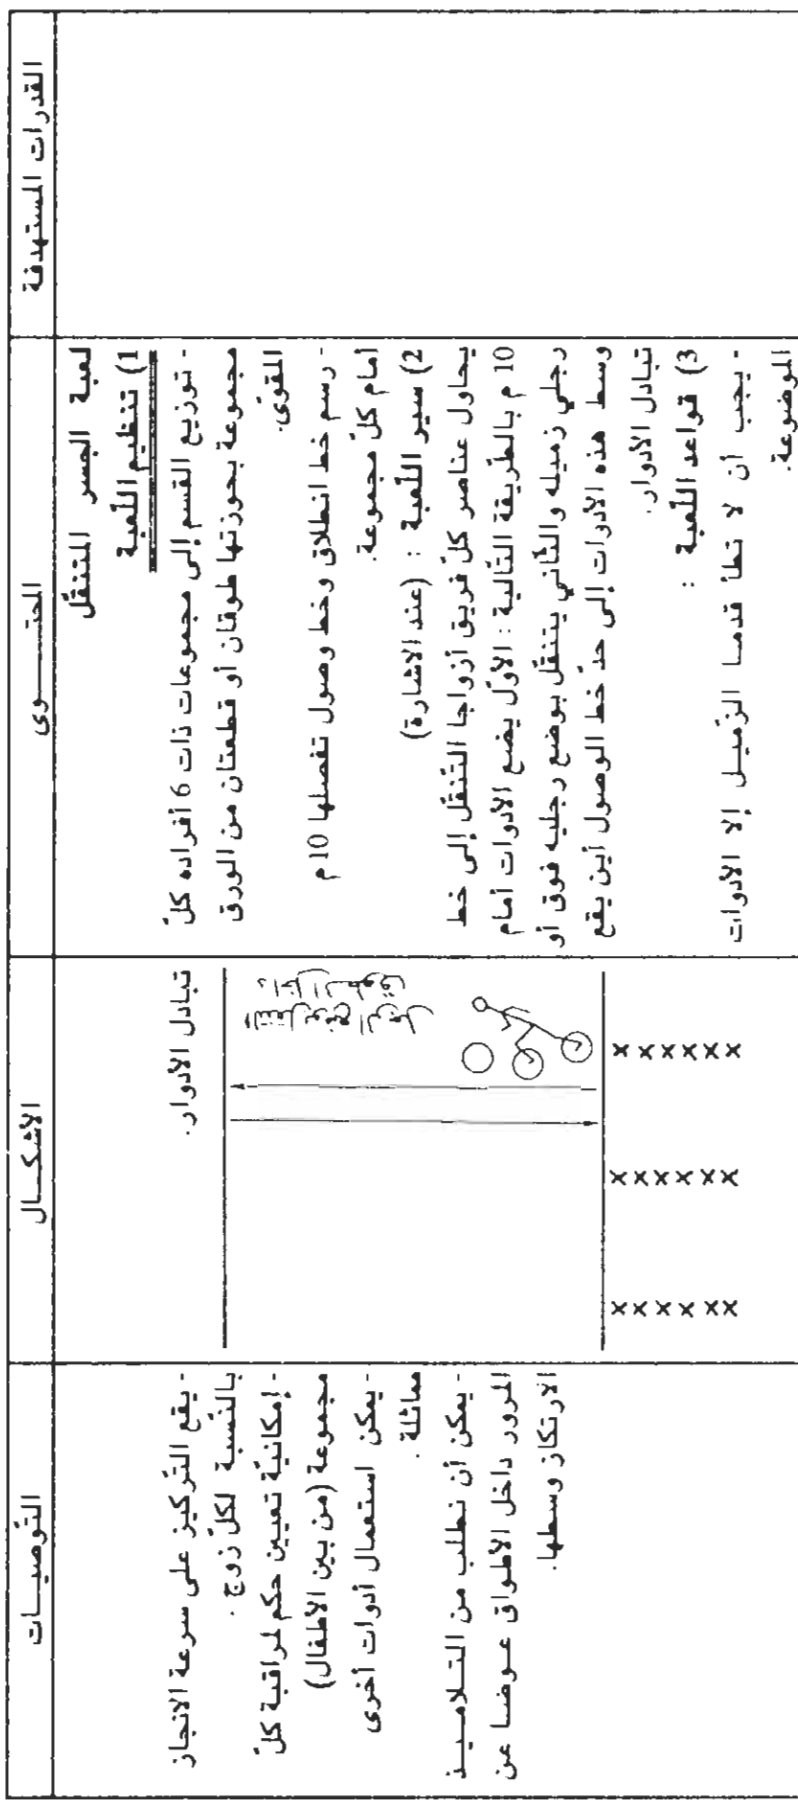 القدرات المستهدفة
المحتــــوى
لعبة الجسر المتنقّل
1) تنظيم اللّعبة
- توزيع القسم إلى مجموعات ذات 6 أفراده كلّ
مجموعة بحوزتها طوقان أو قطعتان من الورق
المقوّى.
- رسم خط انطلاق وخط وصول تفصلها 10 م
أمام كلّ مجموعة.
2) سير اللّعبة : (عند الاشارة)
يحاول عناصر كلّ فريق أزواجا التّنقّل إلى خط
10 م بالطّريقة التّالية : الأوّل يضع الأدوات أمام
رجلي زميله والثّاني يتنقّل بوضع رجليه فوق أو
وسط هذه الأدوات إلى حدّ خط الوصول أين يقع
تبادل الأدوار.
3) قواعد اللّعبة :
- يجب أن لا تطأ قدمـا الزّميـل إلا الأدوات
الموضوعة.
الأشكــال
تبادل الأدوار.
××××××
××××××
××××××
التّوصيــات
- يقع التّركيز على سرعة الانجاز
بالنّسبة لكلّ زوج .
- إمكانيّة تعيين حكم لمراقبة كلّ
مجموعة (من بين الأطفال)
- يمكن استعمال أدوات أخرى
مماثلة .
- يمكن أن نطلب من التـلامـيـذ
المرور داخل الأطواق عـوضـا عن
الارتكاز وسطها.